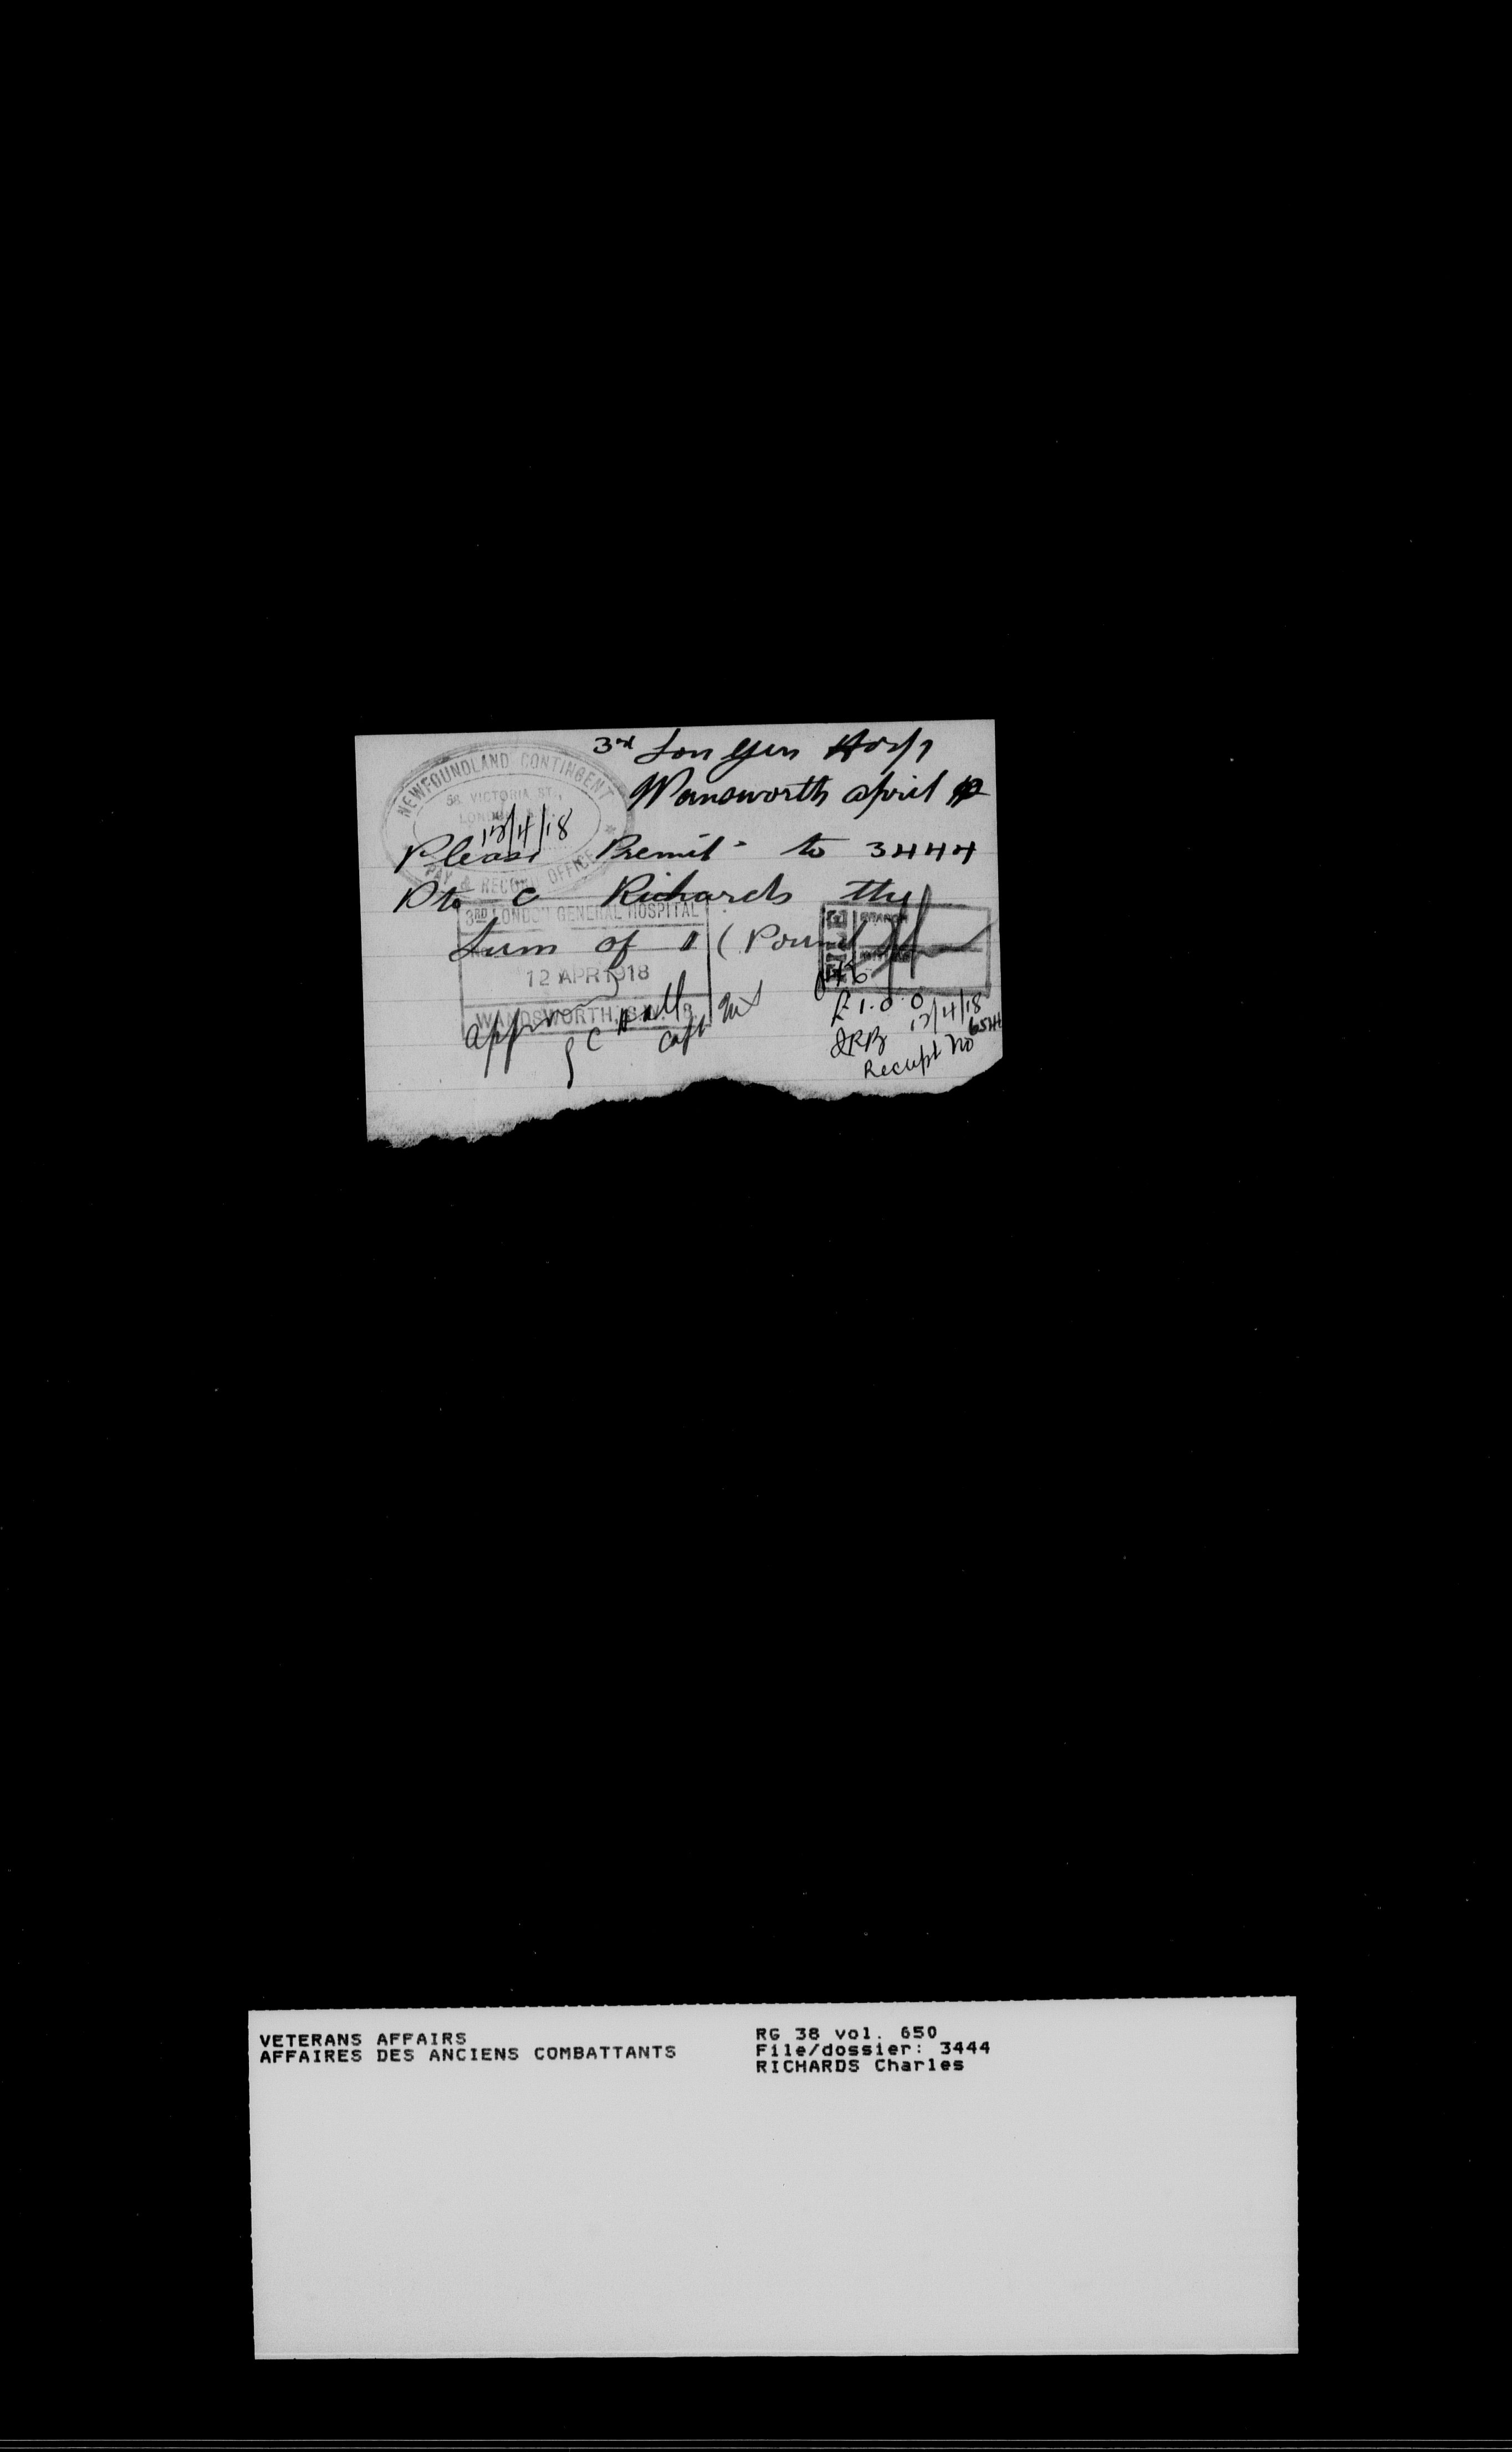 3rd Lon Gen Hosp
Wansworth april
NEWFOUNDLAND CONTINGENT
58 VICTORIA ST.,
LONDON
12/4/18
PAY & RECORD OFFICE
Please Remit to 3444
Pte C Richards the
Sum of 1 (Pound)
3RD LONDON GENERAL HOSPITAL
12 APR 1918
WANDSWORTH, S.W.
£1.0.0
12/4/18
Receipt No 6544
Capt
VETERANS AFFAIRS
AFFAIRES DES ANCIENS COMBATTANTS
RG 38 vol. 650
File/dossier: 3444
RICHARDS Charles